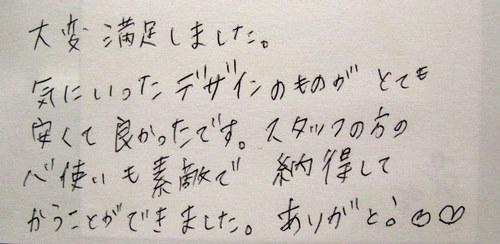 大変満足しました。
気にいったデザインのものがとても
安くて良かったです。スタッフの方の
心使いも素敵で 納得して
かうことができました。ありがと!♡♡